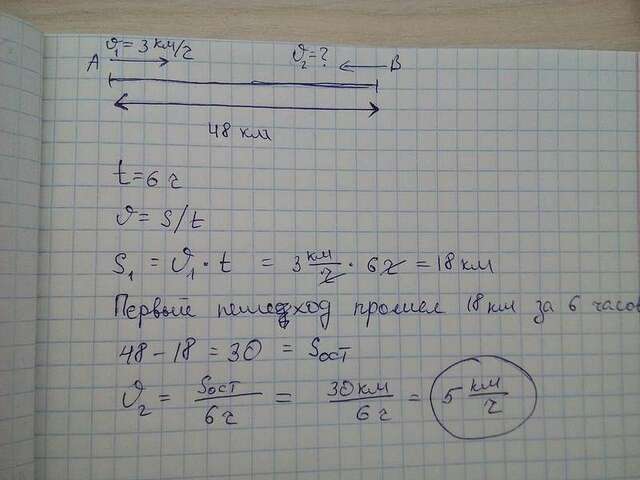 ϑ₁ = 3 км/ч
A ϑ₂ = ? B
48 км
t = 6 ч
ϑ = S/t
S₁ = ϑ₁ · t = 3 км/ч · 6 ч = 18 км
Первый пешеход прошел 18 км за 6 часов
48 - 18 = 30 = Sост
ϑ₂ = Sост/6 ч = 30 км/6 ч = 5 км/ч